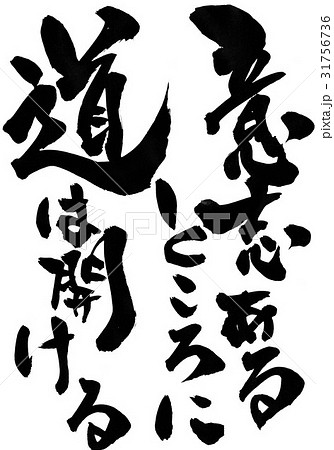 意志ある
ところに
道は開ける
pixta.jp - 31756736
PIXTA